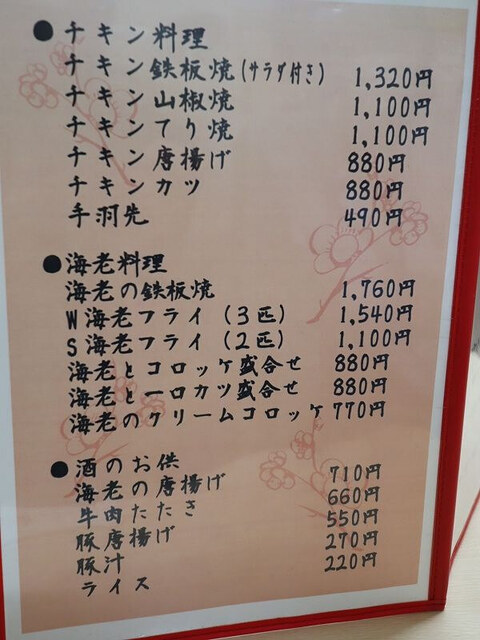 ●チキン料理
チキン鉄板焼(サラダ付き) 1,320円
チキン山椒焼 1,100円
チキンてり焼 1,100円
チキン唐揚げ 880円
チキンカツ 880円
手羽先 490円
●海老料理
海老の鉄板焼 1,760円
W海老フライ(3匹) 1,540円
S海老フライ(2匹) 1,100円
海老とコロッケ盛合せ 880円
海老と一口カツ盛合せ 880円
海老のクリームコロッケ 770円
●酒のお供
海老の唐揚げ 710円
牛肉たたき 660円
豚唐揚げ 550円
豚汁 270円
ライス 220円